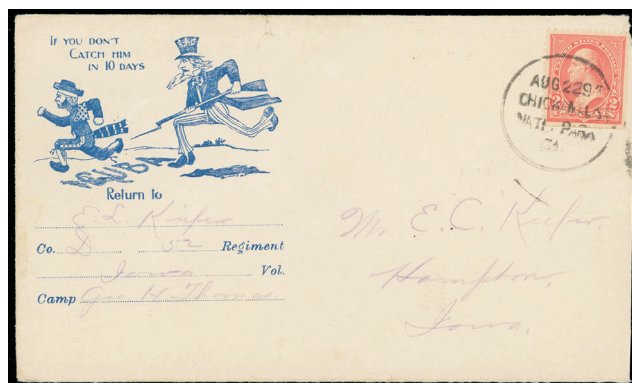 IF YOU DON'T
CATCH HIM
IN 10 DAYS
CUBA
Return to
E. L. Kiefer
Co. D 52 Regiment
Iowa Vol.
Camp Geo H Thomas
2 2
AUG 22 9
NAT'L PARK
GA.
Mr. E. C. Kiefer.
Hampton,
Iowa.